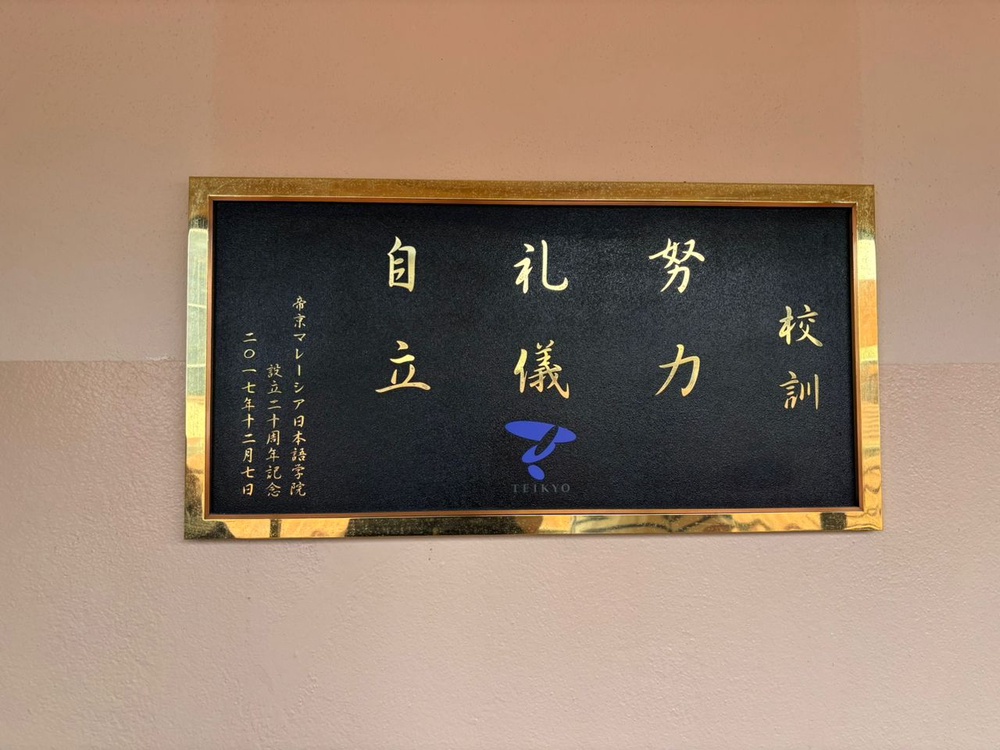 校訓
努力
礼儀
自立
帝京マレーシア日本語学院
設立二十周年記念
二〇一七年十二月七日
TEIKYO